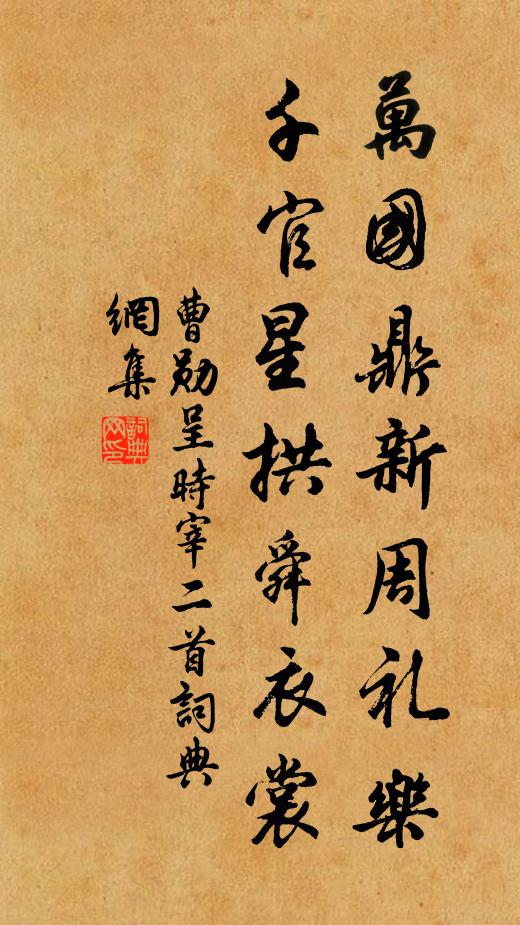 萬國鼎新周礼樂
千官星拱舜衣裳
曹勛呈時宰二首詞典
網集
詞典網印